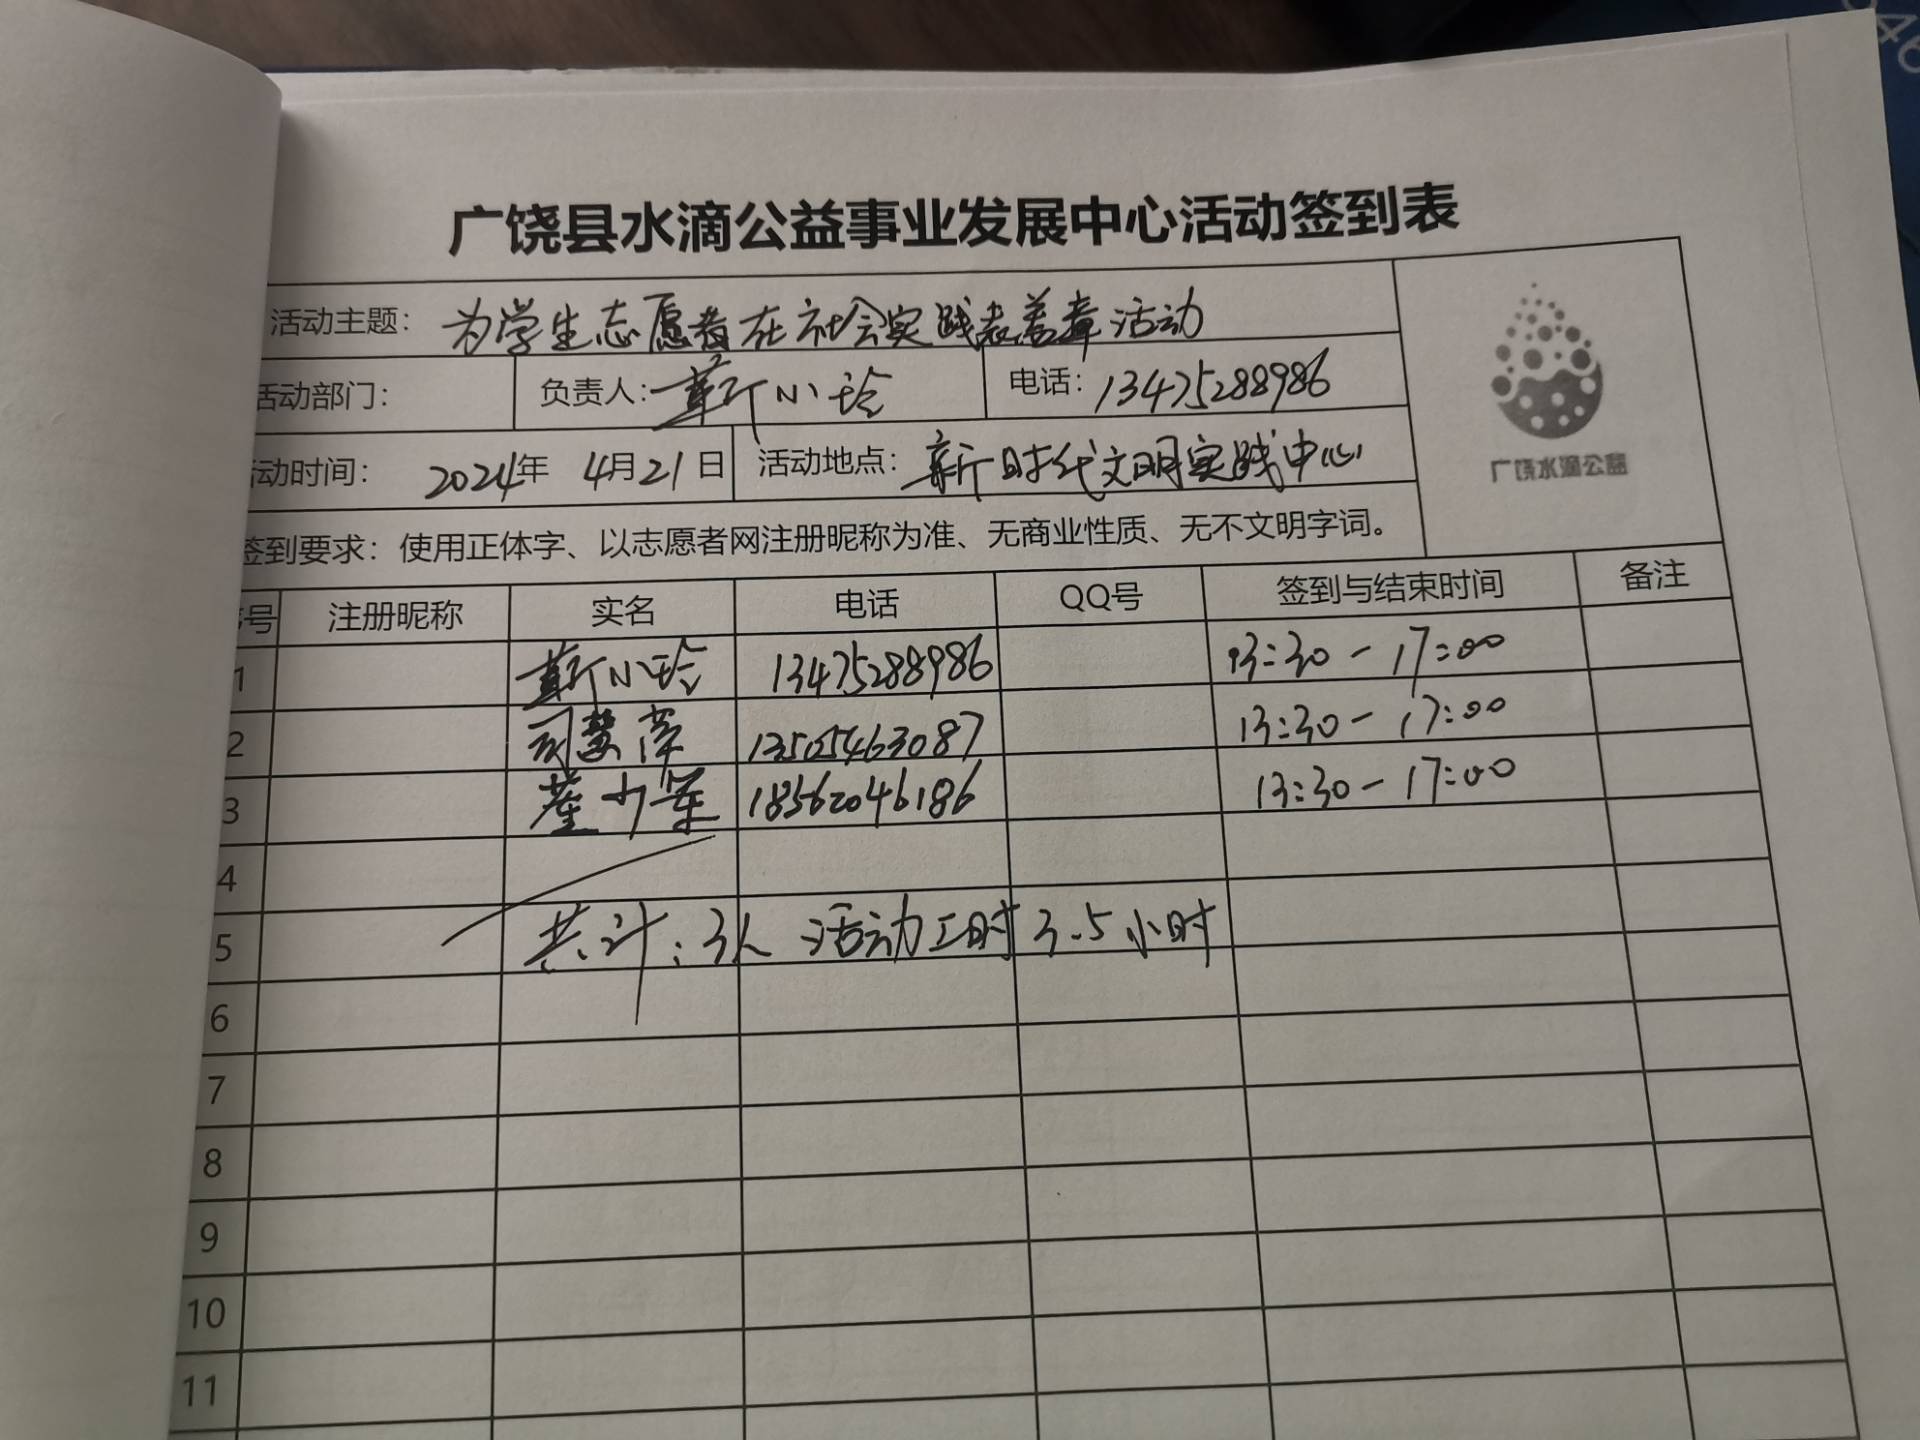 广饶县水滴公益事业发展中心活动签到表
活动主题: 为学生志愿者在社会实践表盖章活动
活动部门: 负责人: 靳小玲 电话: 13475288986
活动时间: 2024年 4月21日 活动地点: 新时代文明实践中心
广饶水滴公益
签到要求: 使用正体字、以志愿者网注册昵称为准、无商业性质、无不文明字词。
号 注册昵称 实名 电话 QQ号 签到与结束时间 备注
1 靳小玲 13475288986 13:30-17:00
2 13505463087 13:30-17:00
3 18562046186 13:30-17:00
4
5 共计: 3人 活动工时 3.5小时
6
7
8
9
10
11